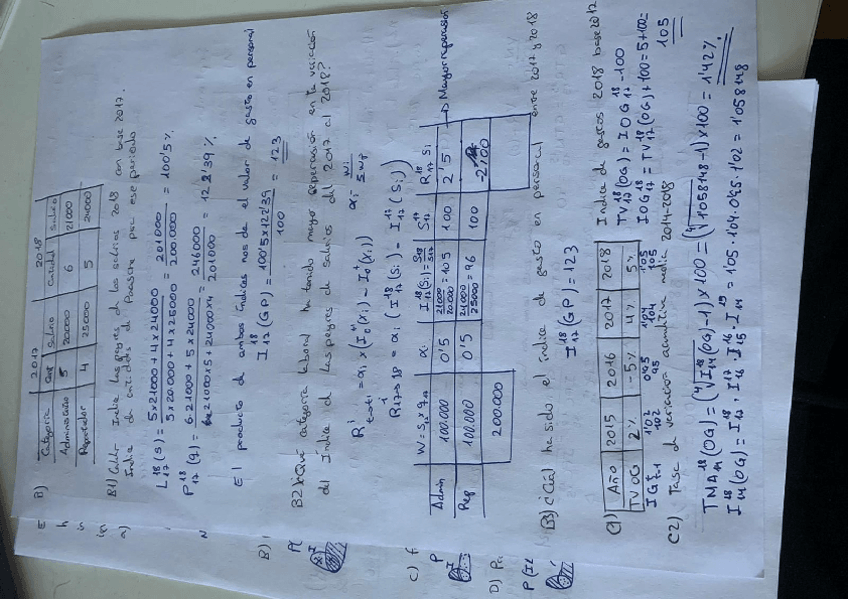 B)
2017 2018
Categoria Cant Salario Cantidad Salario
Administrativo 5 20000 6 21000
Repartidor 4 25000 5 24000
B1) Indice Laspeyres de los salarios 2018 con base 2017.
Indice de cantidades de Paasche para ese periodo
L 18 17 (S) = 5x21000 + 4x24000 / 5x20.000 + 4x25000 = 201000 / 200.000 = 100'5 %
P 18 17 (q) = 6·21000 + 5x24000 / 21000x5 + 24000x4 = 246000 / 201000 = 122'39 %
El producto de ambos índices nos da el valor de gasto en personal
I 18 17 (GP) = 100'5 x 122'39 / 100 = 123
B2) ¿Qué categoria laboral ha tenido mayor reperasión en la variación
del Índice de Laspeyres de salarios del 2017 al 2018?
αi wi / Σwi
R i = αi x (I t 0 (xi) - I 0 (xi))
R i 17→18 = αi (I 18 17 (Si) - I 17 17 (Si))
W = S17 x q17 αi I 18 17 (Si) = S18 / S17 S 17 17 R 18 17 Si
Admin 100.000 0'5 21000 / 20.000 = 105 100 2'5 → Mayor reperasión
Rep 100.000 0'5 24000 / 25000 = 96 100 -2'00
200.000
B3) ¿Cuál ha sido el índice de gasto en personal entre 2017 y 2018
I 18 17 (GP) = 123
C1) Año 2015 2016 2017 2018
TV OG 2% -5% 4% 5%
IG t t-1 1'02 0'95 1'04 1'05
102 95 104 105
Indice de gastos 2018 base 2017
TV 18 17 (OG) = IOG 18 17 - 100
IOG 18 17 = TV 18 17 (OG) + 100 = 5 + 100 =
105
C2) Tasa de variación acumulativa media 2014-2018
TMA 18 14 (OG) = (4√I 18 14 (OG) - 1) x 100 = (4√1'058148 - 1) x 100 = 1'42 %
I 18 14 (OG) = I 18 17 · I 17 16 · I 16 15 · I 15 14 = 1'05 · 1'04 · 0'95 · 1'02 = 1'058148